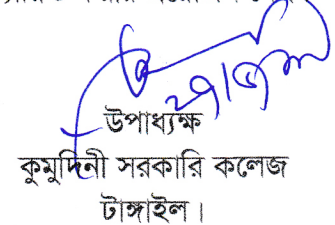 উপাধ্যক্ষ
কুমুদিনী সরকারি কলেজ
টাঙ্গাইল।